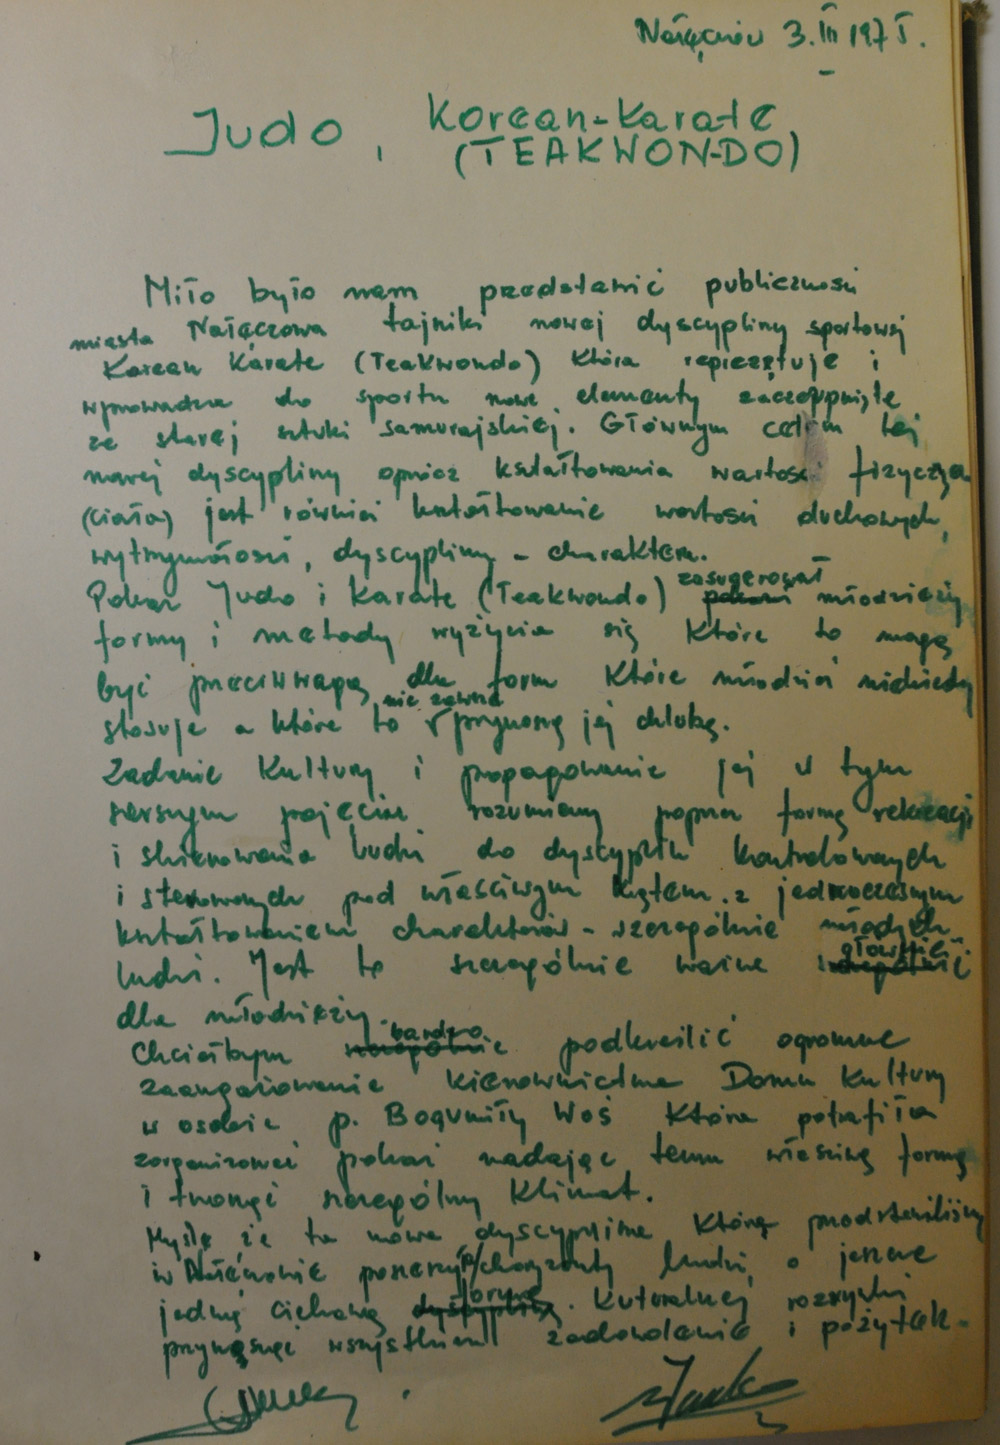 Nałęczów 3.III 1975.
Judo, Korean-Karate
(TEAKWON-DO)
Miło było nam przedstawić publiczności
miasta Nałęczowa tajniki nowej dyscypliny sportowej
Korean Karate (Teakwondo) która reprezętuje i
wprowadza do sportu nowe elementy zaczerpnięte
ze starej sztuki samurajskiej. Głównym celem tej
nowej dyscypliny oprócz kształtowania wartości fizyczn
(ciała) jest również kształtowanie wartości duchowych,
wytrzymałości, dyscypliny - charakteru.
zasugerował
Pokaz Judo i Karate (Teakwondo) młodzieży
formy i metody wyżycia się które to mogą
być przeciwwagą dla form które młodzież niekiedy
nie zawsze
stosuje a które to przynoszą jej chlubę.
Zadanie Kultury i propagowanie jej w tym
szerszym pojęciu rozumiemy poprzez formę rekreacji
i skierowania ludzi do dyscyplin kontrolowanych
i sterowanych pod właściwym kątem z jednoczesnym
kształtowaniem charakterów - szczególnie młodych
głównie
ludzi. Jest to szczególnie ważne
dla młodzieży.
bardzo
Chciałbym podkreślić ogromne
zaangażowanie kierownictwa Domu Kultury
w osobie p. Bogumiły Woś która potrafiła
zorganizować pokaz nadając temu właściwą formę
i tworząc szczególny klimat.
Myślę że ta nowa dyscyplina którą przedstawiliśmy
w Nałęczowie poszerzy horyzonty ludzi o jeszcze
formę
jedną ciekawą . Kuturalnej rozrywki
przynosząc wszystkim zadowolenie i pożytek.